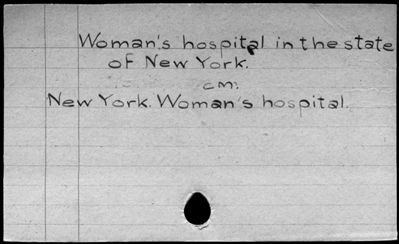 Woman's hospital in the state
of New York.
New York. Woman's hospital.